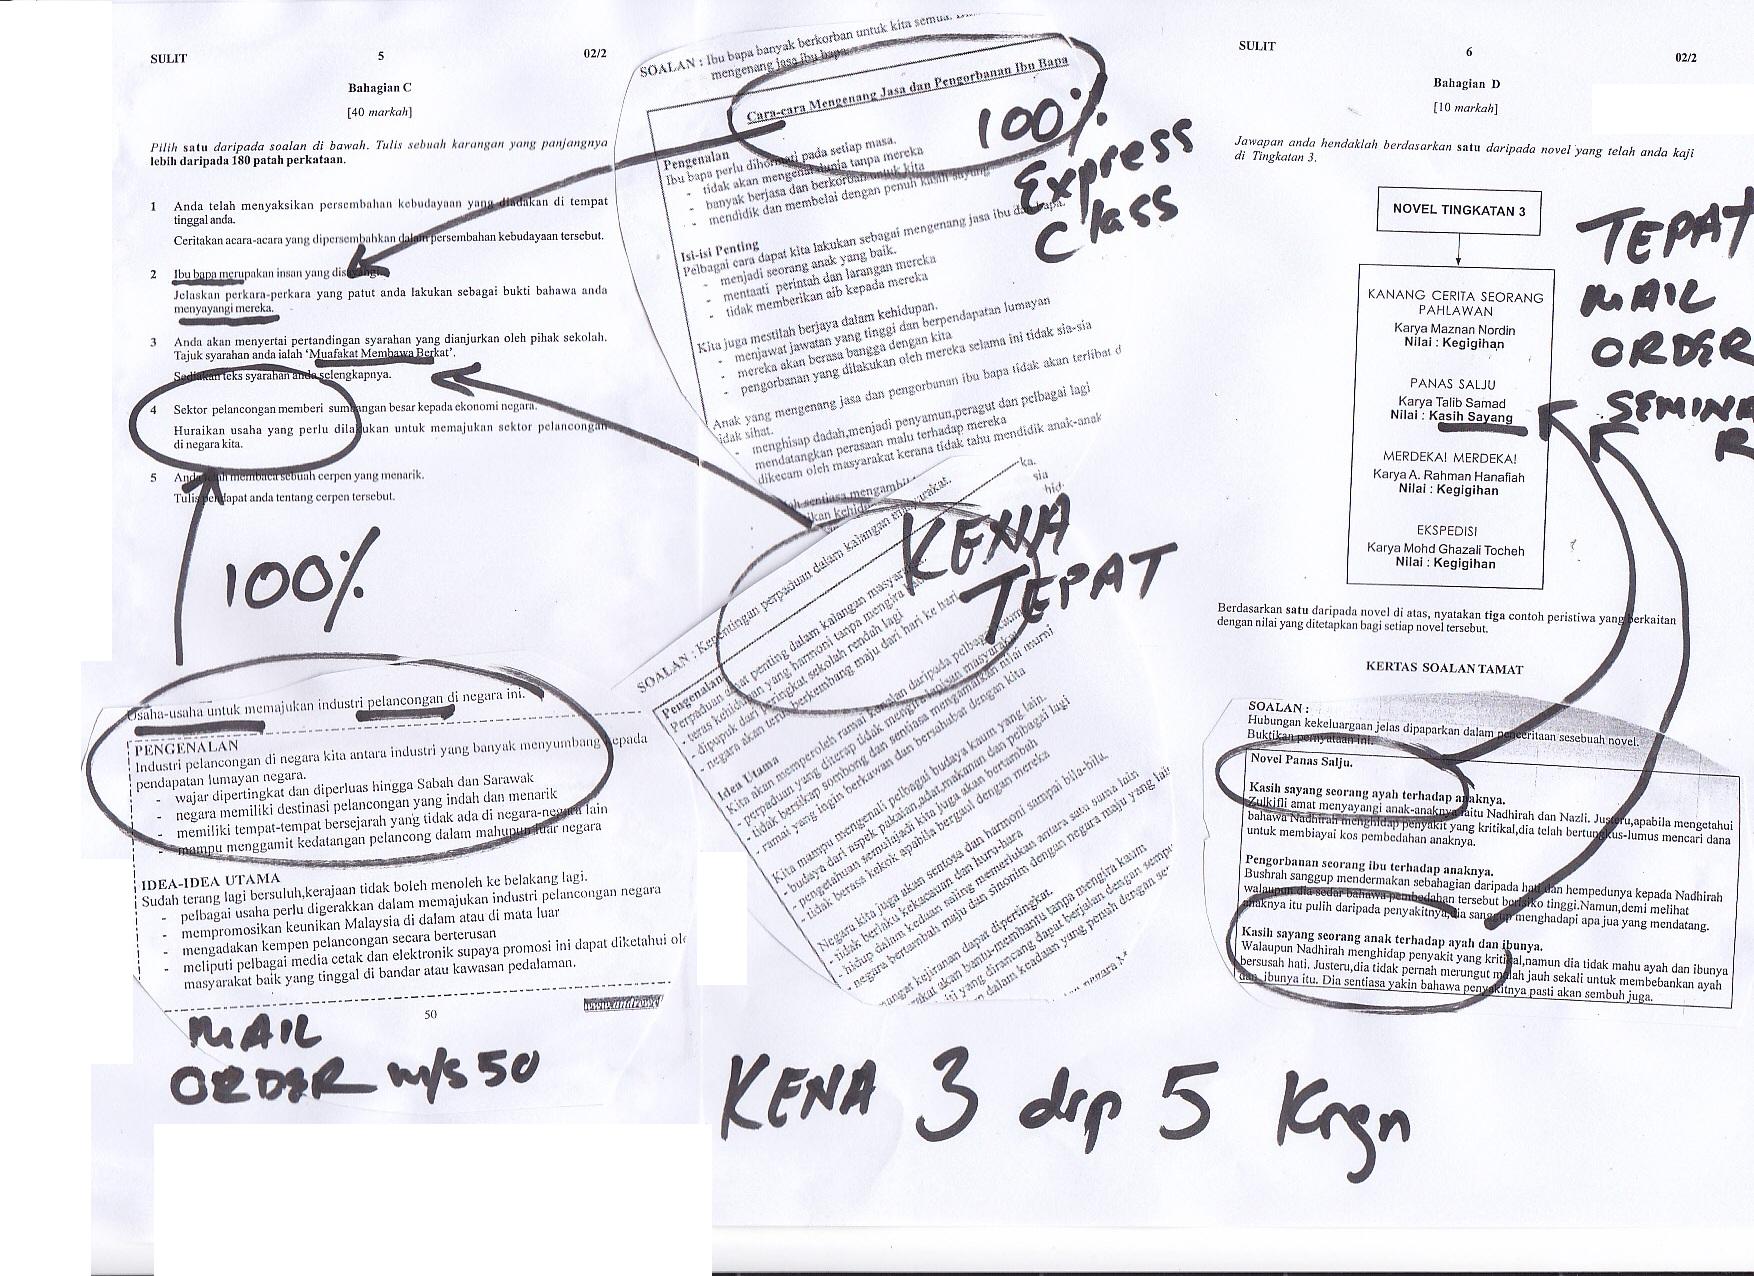 SULIT 5 02/2
Bahagian C
[40 markah]
Pilih satu daripada soalan di bawah. Tulis sebuah karangan yang panjangnya
lebih daripada 180 patah perkataan.
1 Anda telah menyaksikan persembahan kebudayaan yang diadakan di tempat
tinggal anda.
Ceritakan acara-acara yang dipersembahkan dalam persembahan kebudayaan tersebut.
2 Ibu bapa merupakan insan yang disayangi.
Jelaskan perkara-perkara yang patut anda lakukan sebagai bukti bahawa anda
menyayangi mereka.
3 Anda akan menyertai pertandingan syarahan yang dianjurkan oleh pihak sekolah.
Tajuk syarahan anda ialah 'Muafakat Membawa Berkat'.
Sediakan teks syarahan anda selengkapnya.
4 Sektor pelancongan memberi sumbangan besar kepada ekonomi negara.
Huraikan usaha yang perlu dilakukan untuk memajukan sektor pelancongan
di negara kita.
5 Anda telah membaca sebuah cerpen yang menarik.
Tulis pendapat anda tentang cerpen tersebut.
100%
Usaha-usaha untuk memajukan industri pelancongan di negara ini.
PENGENALAN
Industri pelancongan di negara kita antara industri yang banyak menyumbang kepada
pendapatan lumayan negara.
- wajar dipertingkat dan diperluas hingga Sabah dan Sarawak
- negara memiliki destinasi pelancongan yang indah dan menarik
- memiliki tempat-tempat bersejarah yang tidak ada di negara-negara lain
- mampu menggamit kedatangan pelancong dalam mahupun luar negara
IDEA-IDEA UTAMA
Sudah terang lagi bersuluh,kerajaan tidak boleh menoleh ke belakang lagi.
- pelbagai usaha perlu digerakkan dalam memajukan industri pelancongan negara
- mempromosikan keunikan Malaysia di dalam atau di mata luar
- mengadakan kempen pelancongan secara berterusan
- meliputi pelbagai media cetak dan elektronik supaya promosi ini dapat diketahui ole
masyarakat baik yang tinggal di bandar atau kawasan pedalaman.
50
MAIL
ORDER m/s 50
SOALAN : Ibu bapa banyak berkorban untuk kita semua.
mengenang jasa ibu bapa.
Cara-cara Mengenang Jasa dan Pengorbanan Ibu Bapa
100%
Express
Class
Pengenalan
Ibu bapa perlu dihormati pada setiap masa.
- tidak akan mengenal dunia tanpa mereka
- banyak berjasa dan berkorban untuk kita
- mendidik dan membelai dengan penuh kasih sayang
Isi-isi Penting
Pelbagai cara dapat kita lakukan sebagai mengenang jasa ibu dan bapa.
- menjadi seorang anak yang baik.
- mentaati perintah dan larangan mereka
- tidak memberikan aib kepada mereka
Kita juga mestilah berjaya dalam kehidupan.
- menjawat jawatan yang tinggi dan berpendapatan lumayan
- mereka akan berasa bangga dengan kita
- pengorbanan yang dilakukan oleh mereka selama ini tidak sia-sia
Anak yang mengenang jasa dan pengorbanan ibu bapa tidak akan terlibat d
idak sihat.
- menghisap dadah,menjadi penyamun,peragut dan pelbagai lagi
mendatangkan perasaan malu terhadap mereka
dikecam oleh masyarakat kerana tidak tahu mendidik anak-anak
KENA
TEPAT
SOALAN : Kepentingan perpaduan dalam kalangan masyarakat.
Pengenalan
Perpaduan amat penting dalam kalangan masyarakat
- teras kehidupan yang harmoni tanpa mengira
- dipupuk dari peringkat sekolah rendah lagi
- negara akan terus berkembang maju dari hari ke hari
Idea Utama
Kita akan memperoleh ramai kenalan daripada pelbagai kaum
- perpaduan yang diterap tidak mengira lapisan masyarakat
- tidak bersikap sombong dan sentiasa mengamalkan nilai murni
- ramai yang ingin berkawan dan bersahabat dengan kita
Kita mampu mengenali pelbagai budaya kaum yang lain.
- budaya dari aspek pakaian,adat,makanan dan pelbagai lagi
- pengetahuan semulajadi kita juga akan bertambah
- tidak berasa kekok apabila bergaul dengan mereka
Negara kita juga akan sentosa dan harmoni sampai bila-bila.
- tidak berlaku kekacauan dan huru-hara
- hidup dalam keadaan saling memerlukan antara satu sama lain
- negara bertambah maju dan sinonim dengan negara maju yang lain
KENA 3 drp 5 Krgn
SULIT 6 02/2
Bahagian D
[10 markah]
Jawapan anda hendaklah berdasarkan satu daripada novel yang telah anda kaji
di Tingkatan 3.
NOVEL TINGKATAN 3
KANANG CERITA SEORANG
PAHLAWAN
Karya Maznan Nordin
Nilai : Kegigihan
PANAS SALJU
Karya Talib Samad
Nilai : Kasih Sayang
MERDEKA! MERDEKA!
Karya A. Rahman Hanafiah
Nilai : Kegigihan
EKSPEDISI
Karya Mohd Ghazali Tocheh
Nilai : Kegigihan
TEPAT
MAIL
ORDER
SEMINA
R
Berdasarkan satu daripada novel di atas, nyatakan tiga contoh peristiwa yang berkaitan
dengan nilai yang ditetapkan bagi setiap novel tersebut.
KERTAS SOALAN TAMAT
SOALAN :
Hubungan kekeluargaan jelas dipaparkan dalam penceritaan sesebuah novel.
Buktikan pernyataan ini.
Novel Panas Salju.
Kasih sayang seorang ayah terhadap anaknya.
Zulkifli amat menyayangi anak-anaknya iaitu Nadhirah dan Nazli. Justeru,apabila mengetahui
bahawa Nadhirah menghidap penyakit yang kritikal,dia telah bertungkus-lumus mencari dana
untuk membiayai kos pembedahan anaknya.
Pengorbanan seorang ibu terhadap anaknya.
Bushrah sanggup mendermakan sebahagian daripada hati dan hempedunya kepada Nadhirah
walaupun dia sedar bahawa pembedahan tersebut berisiko tinggi.Namun,demi melihat
anaknya itu pulih daripada penyakitnya,dia sanggup menghadapi apa jua yang mendatang.
Kasih sayang seorang anak terhadap ayah dan ibunya.
Walaupun Nadhirah menghidap penyakit yang kritikal,namun dia tidak mahu ayah dan ibunya
bersusah hati. Justeru,dia tidak pernah merungut malah jauh sekali untuk membebankan ayah
dan ibunya itu. Dia sentiasa yakin bahawa penyakitnya pasti akan sembuh juga.